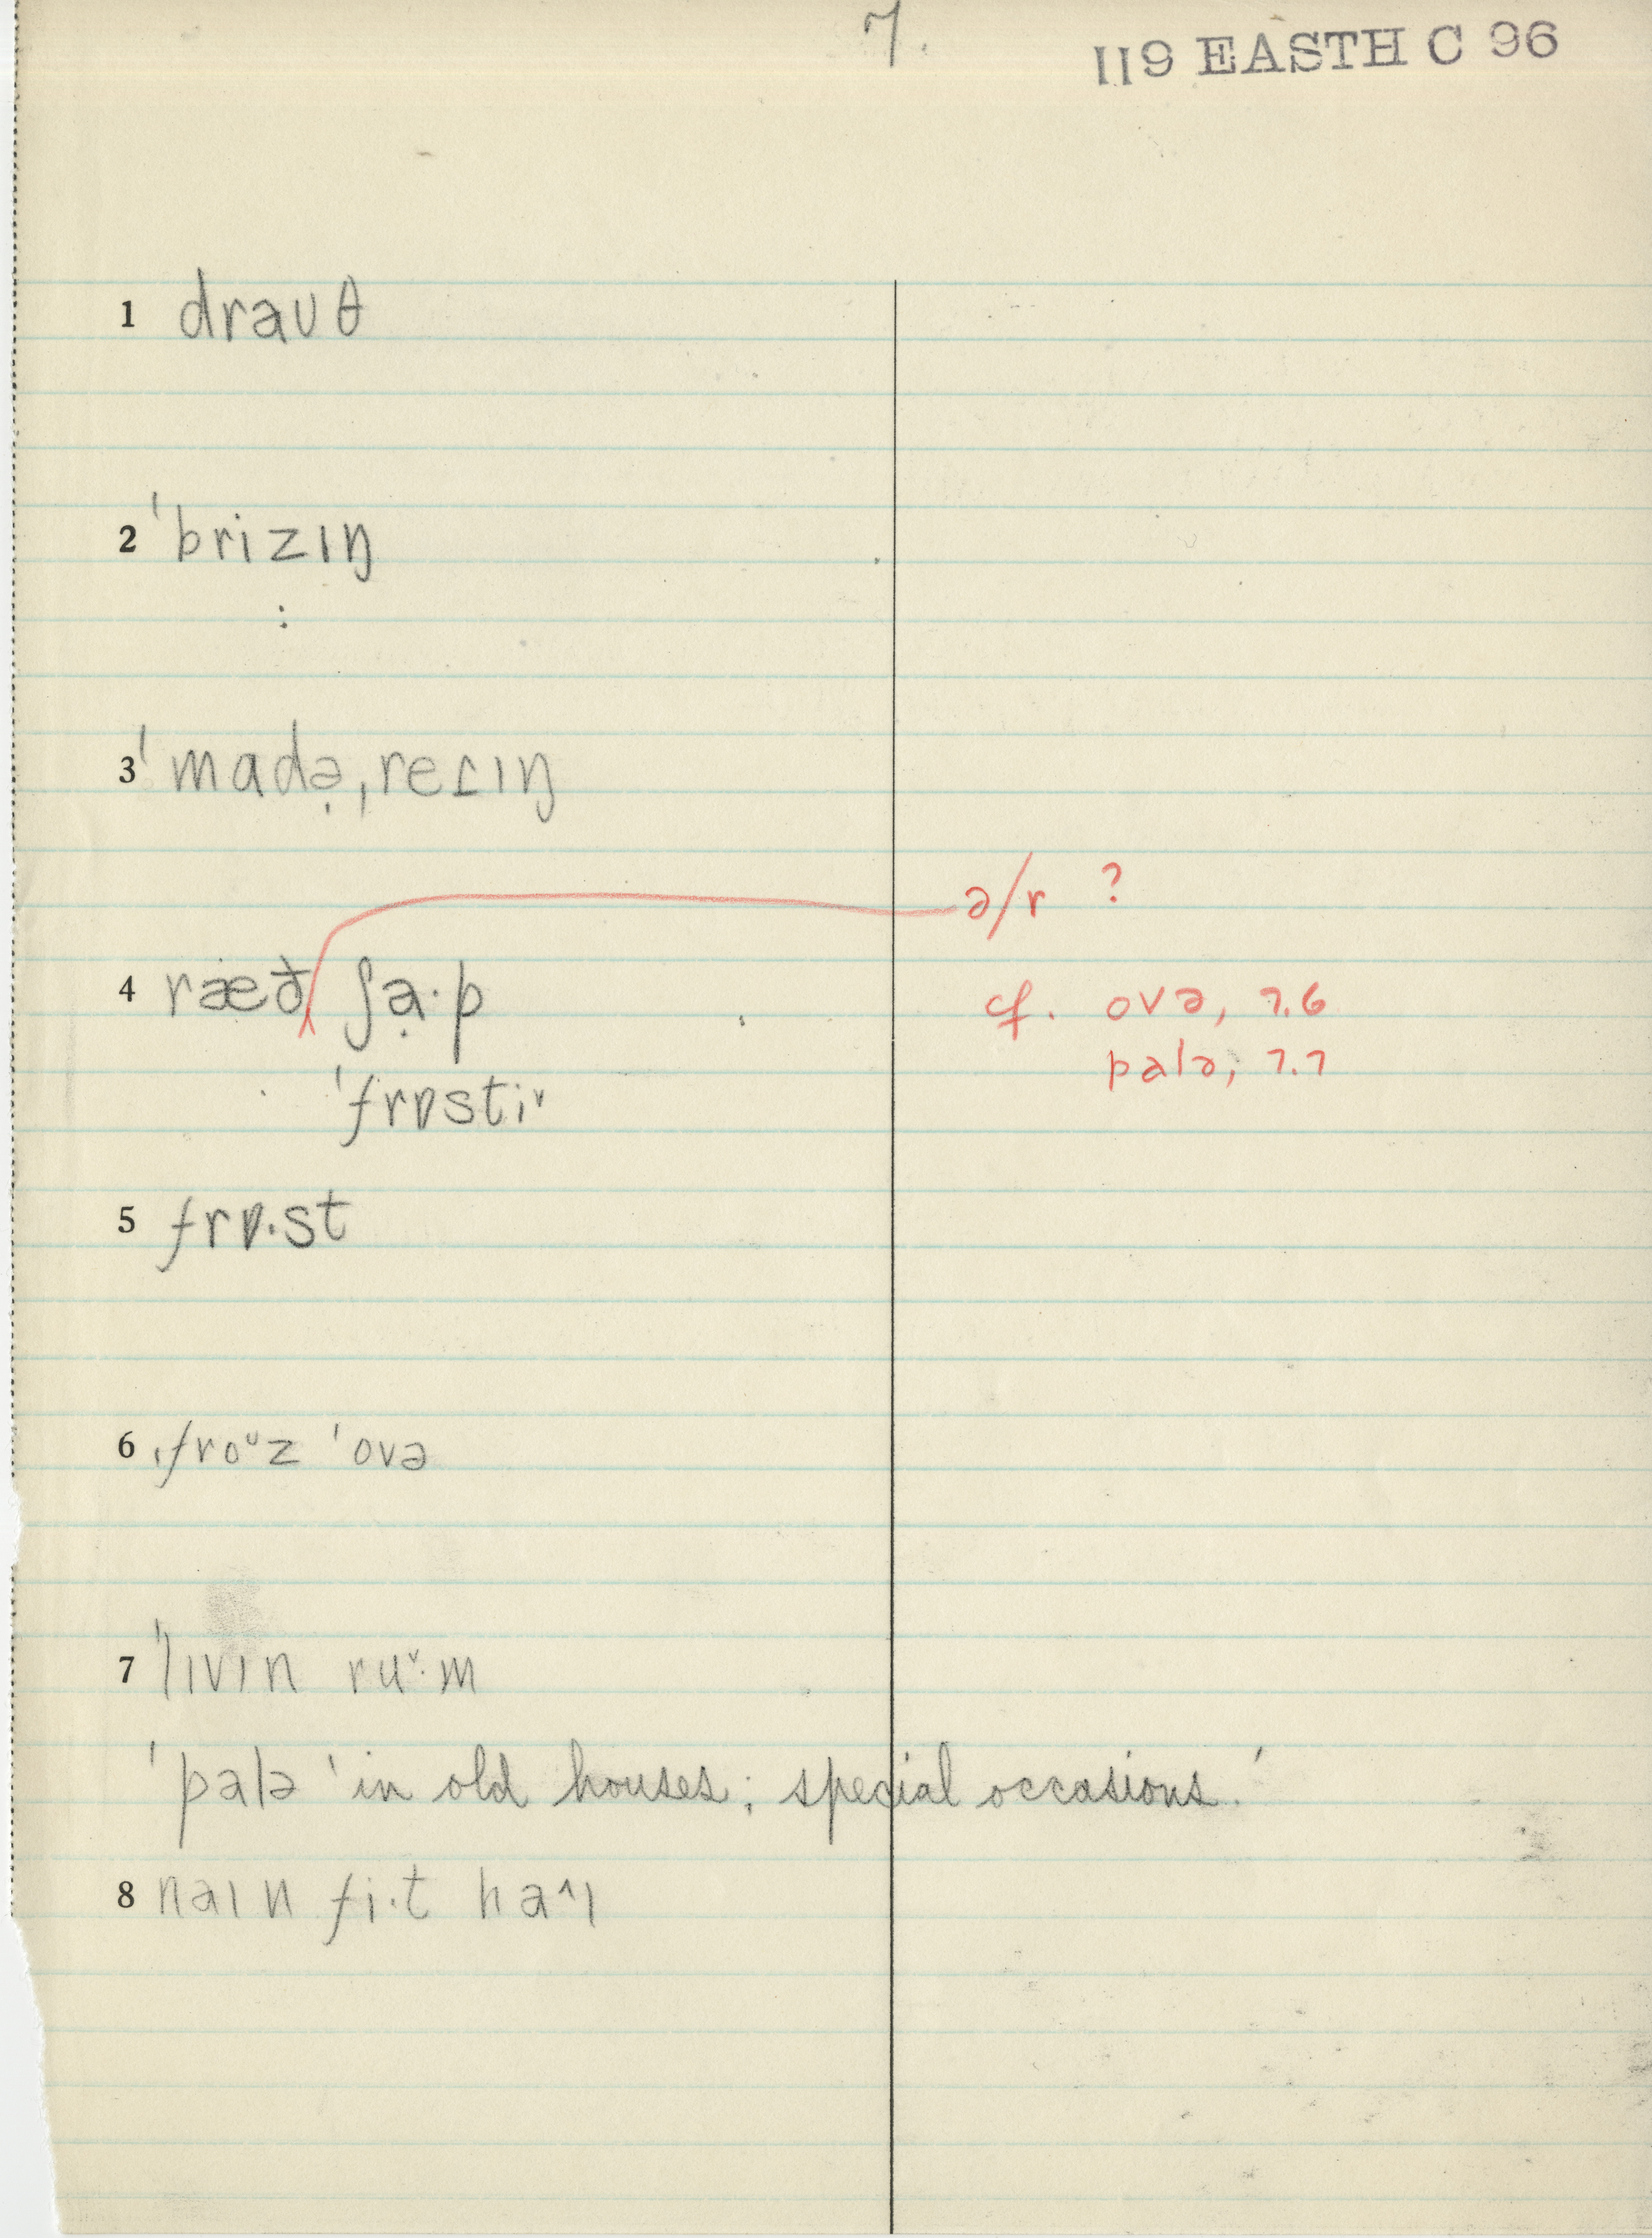 7.
119 EASTH C 96
1 draʊθ
2 ˈbrizɪŋ
3 ˈmadə̣ˌreɾɪŋ
ə/r ?
4 ræð ʃạ·p
cf. ovə, 7.6
palə, 7.7
ˈfrɒstiˇ
5 frɒ·st
6 ˌfroᶷz ˈovə
7 ˈlɪvɪn ruˇ·m
ˈpalə 'in old houses; special occasions.'
8 naɪn fi·t ha^ɪ